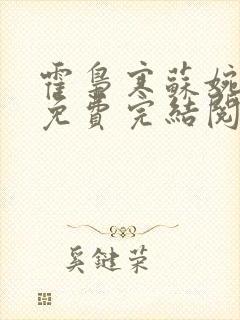 霍梟寒蘇婉
免費完結閱
奚鍵荣